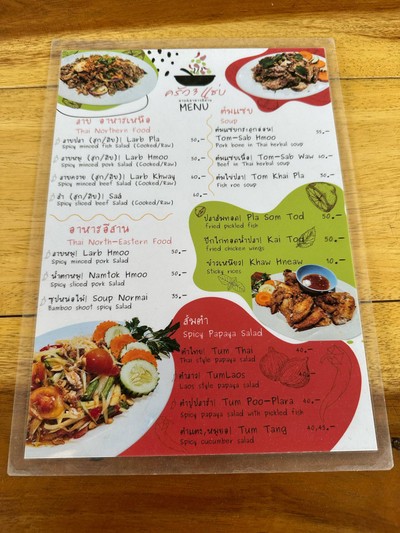 ครัว 4 แซ่บ
MENU
ลาบ อาหารเหนือ
Thai Northern Food
ลาบปลา (สุก/ดิบ) Larb Pla 50.-
Spicy minced fish Salad (Cooked/Raw)
ลาบหมู (สุก/ดิบ) Larb Hmoo
Spicy minced pork Salad (Cooked/Raw)
ลาบควาย (สุก/ดิบ) Larb Khway
Spicy minced beef Salad (Cooked/Raw)
ส้า (สุก/ดิบ) Saa
Spicy sliced beef Salad (Cooked/Raw)
อาหารอีสาน
Thai North-Eastern Food
ลาบหมู Larb Hmoo 50.-
Spicy minced pork Salad
น้ำตกหมู Namtok Hmoo 50.-
Spicy sliced pork Salad
ซุปหน่อไม้ Soup Normai 35.-
Bamboo shoot spicy Salad
ต้มแซ่บ
Soup
ต้มแซ่บกระดูกอ่อน
Tom-Sab Hmoo
Pork bone in Thai herbal soup
ต้มแซ่บเนื้อ Tom-Sab Wau
Beef in Thai herbal soup
ต้มไข่ปลา Tom Khai Pla
Fish roe soup
ปลาส้มทอด Pla Som Tod 50.-
Fried pickled fish
ปีกไก่ทอดน้ำปลา Kai Tod 50.-
Fried chicken wings
ข่าวเหนียว Khaw Hneaw 10.-
Sticky rices
ส้มตำ
Spicy Papaya Salad
ตำไทย Tum Thai 40.-
Thai style papaya salad
ตำลาว TumLaos 40.-
Laos style papaya salad
ตำปูปลาร้า Tum Poo-Plara 40.-
Spicy papaya salad with pickled fish
ตำแตง,หมูยอ Tum Tang 40,45.-
Spicy cucumber salad